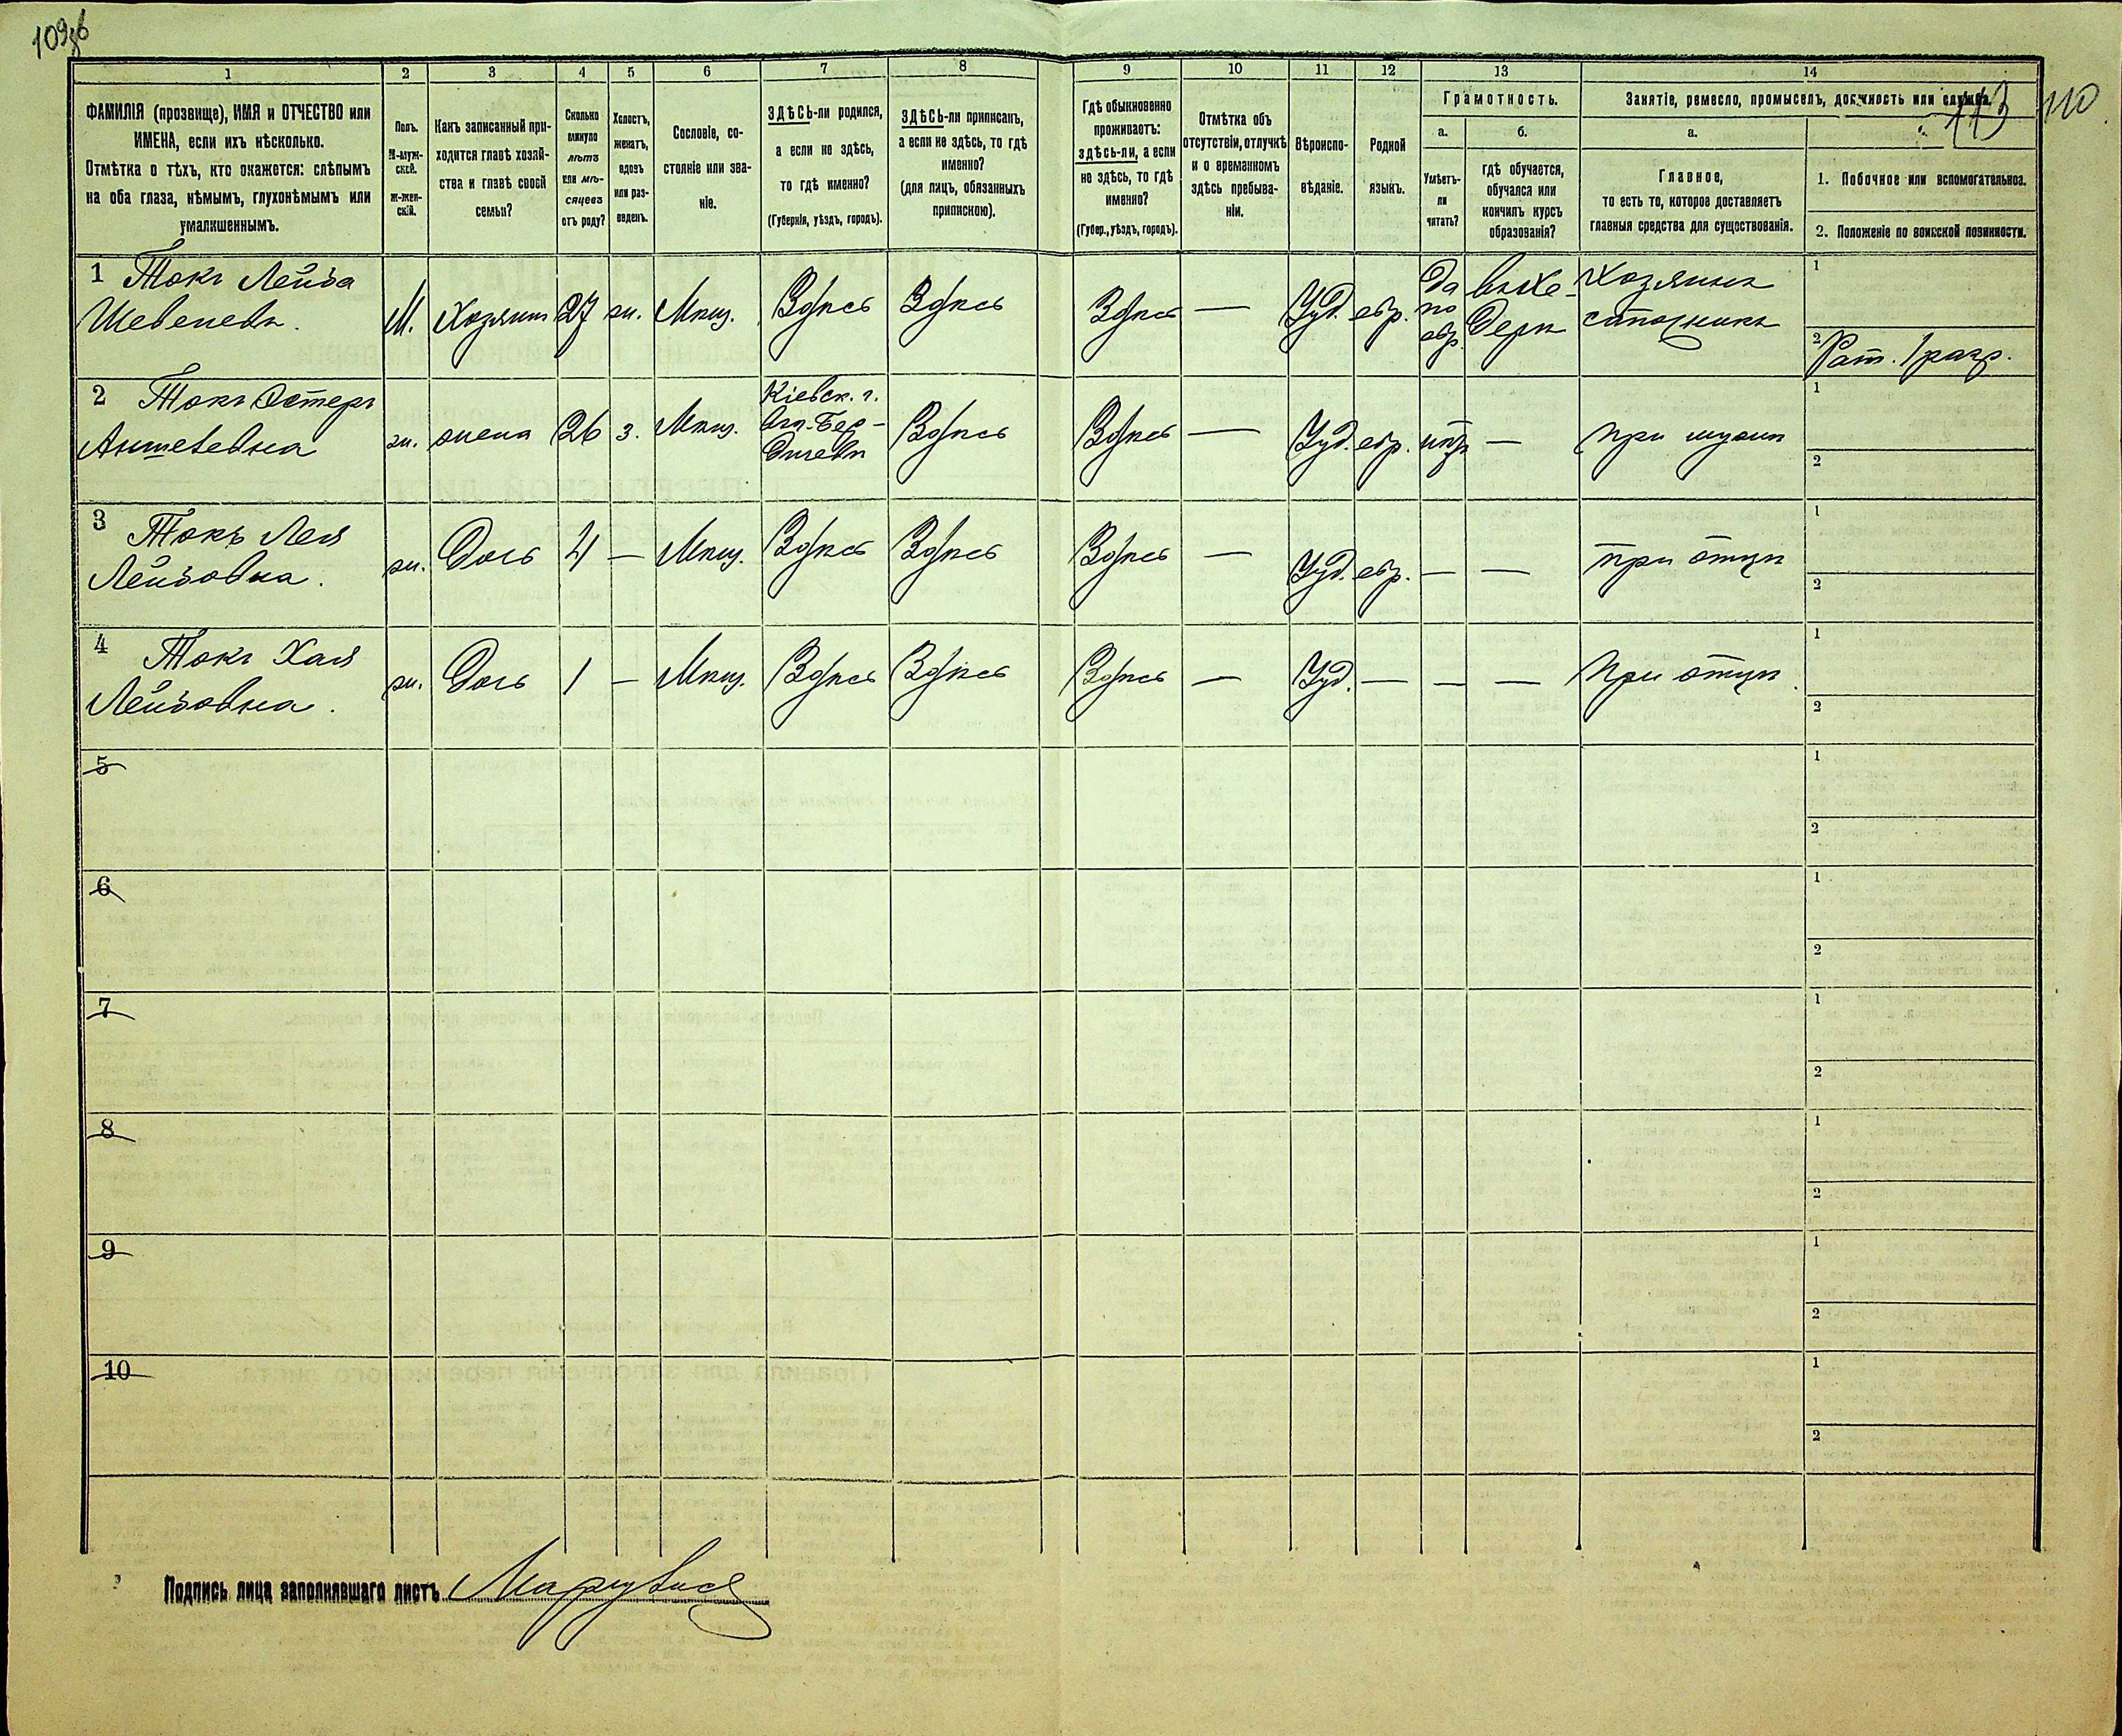 109об
113 110
1 2 3 4 5 6 7 8 9 10 11 12 13 14
ФАМИЛІЯ (прозвище), ИМЯ и ОТЧЕСТВО или
ИМЕНА, если ихъ нѣсколько.
Отмѣтка о тѣхъ, кто окажется: слѣпымъ
на оба глаза, нѣмымъ, глухонѣмымъ или
умалишеннымъ.
Полъ.
М-муж-
ской.
Ж-жен-
скій.
Какъ записанный при-
ходится главѣ хозяй-
ства и главѣ своей
семьи?
Сколько
минуло
лѣтъ
или мѣ-
сяцевъ
отъ роду?
Холостъ,
женатъ,
вдовъ
или раз-
веденъ.
Сословіе, со-
стояніе или зва-
ніе.
ЗДѢСЬ-ли родился,
а если не здѣсь,
то гдѣ именно?
(Губернія, уѣздъ, городъ).
ЗДѢСЬ-ли приписанъ,
а если не здѣсь, то гдѣ
именно?
(для лицъ, обязанныхъ
припискою).
Гдѣ обыкновенно
проживаетъ:
здѣсь-ли, а если
не здѣсь, то гдѣ
именно?
(Губер., уѣздъ, городъ).
Отмѣтка объ
отсутствіи, отлучкѣ
и о временномъ
здѣсь пребыва-
ніи.
Вѣроиспо-
вѣданіе.
Родной
языкъ.
Грамотность.
а.
Умѣетъ-
ли
читать?
б.
гдѣ обучается,
обучался или
кончилъ курсъ
образованія?
Занятіе, ремесло, промыселъ, должность или служба.
а.
Главное,
то есть то, которое доставляетъ
главныя средства для существованія.
1. Побочное или вспомогательное.
2. Положеніе по воинской повинности.
1 Токъ Лейба
Шевелевъ.
М. Хозяинъ 27 ж. Мѣщ. Здѣсь Здѣсь Здѣсь — Іуд. евр. да по евр. въ Хе-
дерѣ Хозяинъ
столяръ 1
2 Рат. 1 разр.
2 Токъ Эстеръ
Аншелевна
ж. жена 26 з. Мѣщ. Кіевск. г.
въ г. Бер-
дичевѣ Здѣсь Здѣсь — Іуд. евр. нѣтъ — при мужѣ 1
2
3 Токъ Лея
Лейбовна.
ж. Дочь 4 — Мѣщ. Здѣсь Здѣсь Здѣсь — Іуд. евр. — — при отцѣ 1
2
4 Токъ Хая
Лейбовна.
ж. Дочь 1 — Мѣщ. Здѣсь Здѣсь Здѣсь — Іуд. — — — При отцѣ. 1
2
5 1
2
6 1
2
7 1
2
8 1
2
9 1
2
10 1
2
Подпись лица заполнявшаго листъ